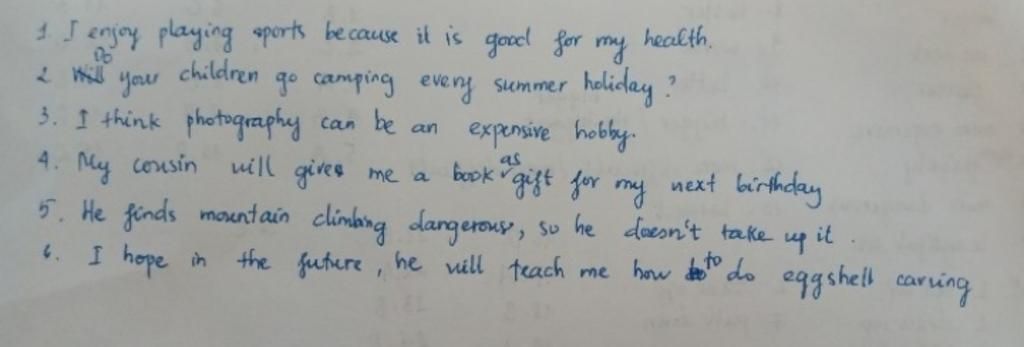 1. I enjoy playing sports because it is good for my health.
2 Do your children go camping every summer holiday?
3. I think photography can be an expensive hobby.
4. My cousin will gives me a book as gift for my next birthday
5. He finds mountain climbing dangerous, so he doesn't take up it.
6. I hope in the future, he will teach me how to do eggshell carving